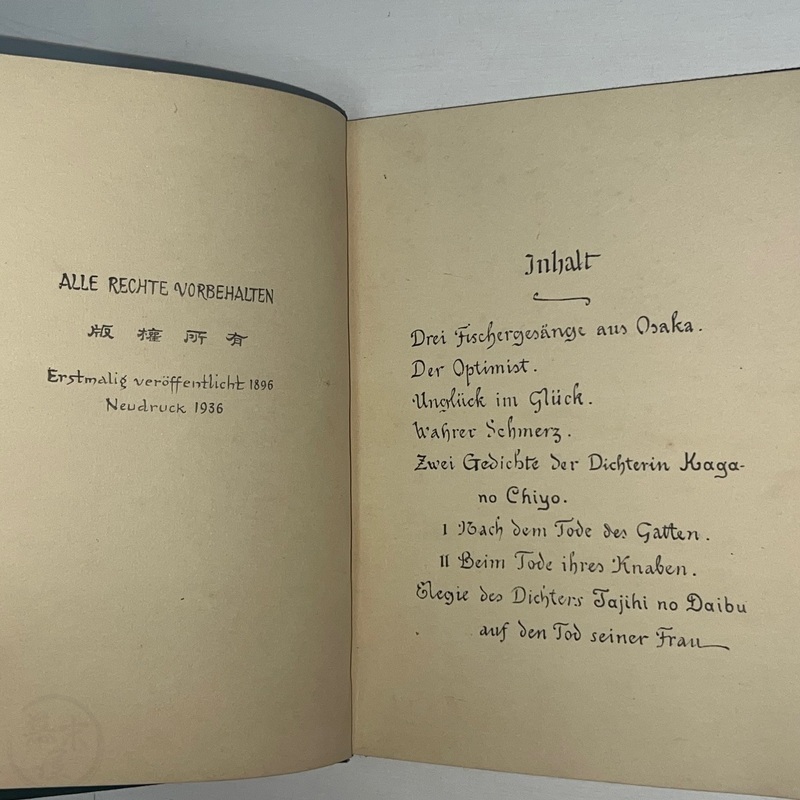 ALLE RECHTE VORBEHALTEN
版權所有
Erstmalig veröffentlicht 1896
Neudruck 1936
Inhalt
Drei Fischergesänge aus Osaka.
Der Optimist.
Unglück im Glück.
Wahrer Schmerz.
Zwei Gedichte der Dichterin Kaga-
no Chiyo.
I Nach dem Tode des Gatten.
II Beim Tode ihres Knaben.
Elegie des Dichters Tajihi no Daibu
auf den Tod seiner Frau